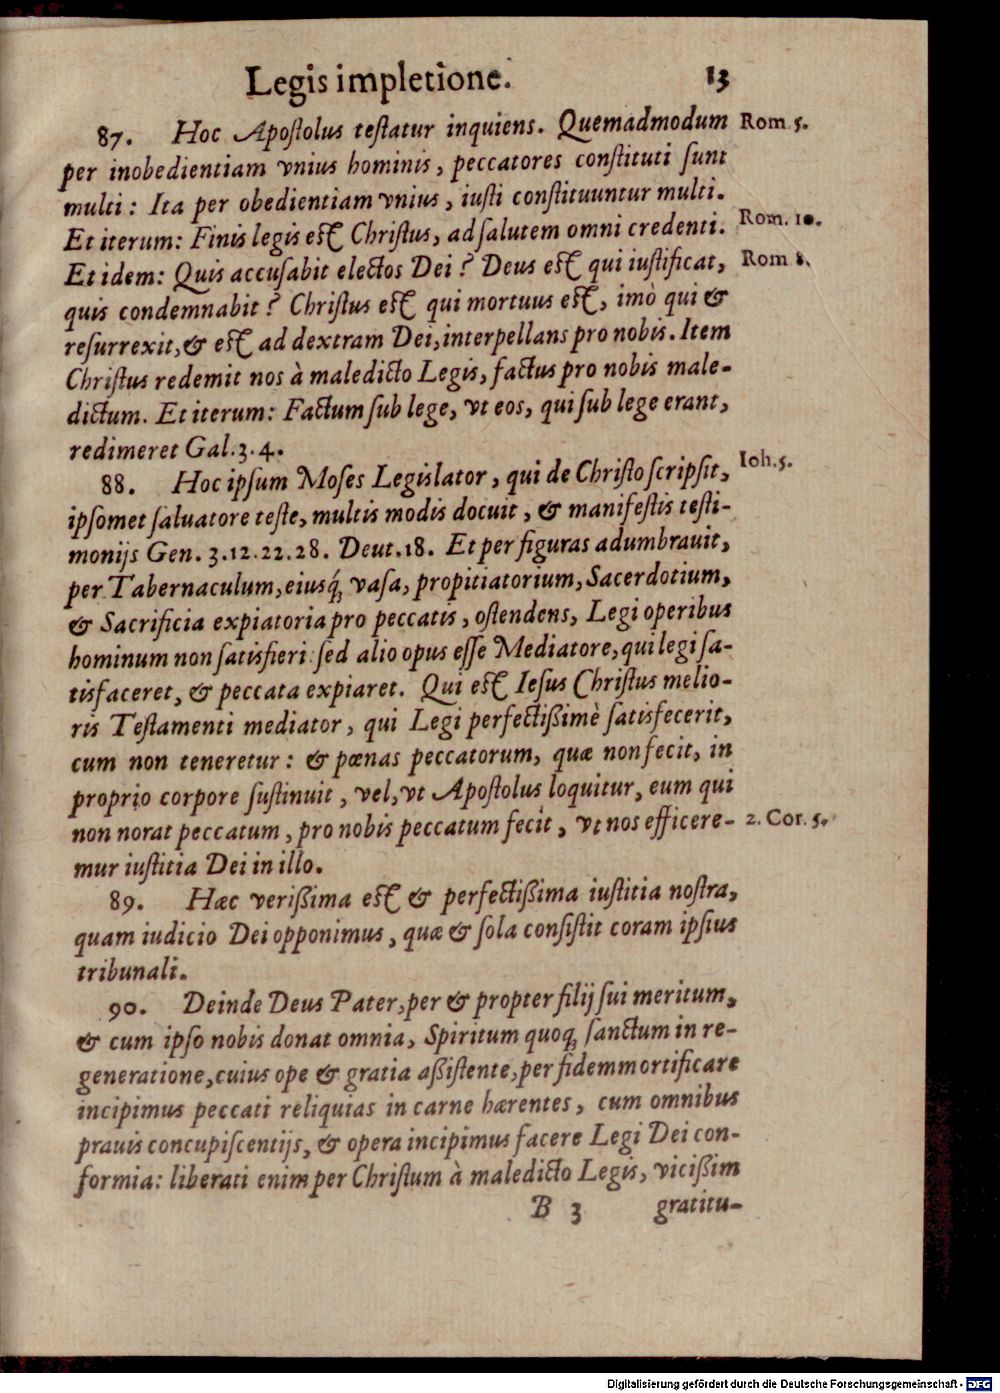 Legis impletione. 13
87. Hoc Apoſtolus teſtatur inquiens. Quemadmodum Rom. 5.
per inobedientiam vnius hominis, peccatores conſtituti ſunt
multi: Ita per obedientiam vnius, iuſti conſtituuntur multi.
Et iterum: Finis legis eſt Chriſtus, ad ſalutem omni credenti. Rom. 10.
Et idem: Quis accuſabit electos Dei? Deus eſt qui iuſtificat, Rom 8.
quis condemnabit? Chriſtus eſt qui mortuus eſt, imò qui &
reſurrexit, & eſt ad dextram Dei, interpellans pro nobis. Item
Chriſtus redemit nos à maledicto Legis, factus pro nobis male-
dictum. Et iterum: Factum ſub lege, vt eos, qui ſub lege erant,
redimeret Gal. 3. 4.
88. Hoc ipſum Moſes Legislator, qui de Chriſto ſcripſit, Ioh. 5.
ipſomet ſaluatore teſte, multis modis docuit, & manifeſtis teſti-
monijs Gen. 3. 12. 22. 28. Deut. 18. Et per figuras adumbrauit,
per Tabernaculum, eiusq́; vaſa, propitiatorium, Sacerdotium,
& Sacrificia expiatoria pro peccatis, oſtendens, Legi operibus
hominum non ſatisfieri: ſed alio opus eſſe Mediatore, qui legi ſa-
tisfaceret, & peccata expiaret. Qui eſt Ieſus Chriſtus melio-
ris Teſtamenti mediator, qui Legi perfectißimè ſatisfecerit,
cum non teneretur: & pœnas peccatorum, quæ non fecit, in
proprio corpore ſuſtinuit, vel, vt Apoſtolus loquitur, eum qui
non norat peccatum, pro nobis peccatum fecit, vt nos efficere- 2. Cor. 5.
mur iuſtitia Dei in illo.
89. Hæc verißima eſt & perfectißima iuſtitia noſtra,
quam iudicio Dei opponimus, quæ & ſola conſiſtit coram ipſius
tribunali.
90. Deinde Deus Pater, per & propter filij ſui meritum,
& cum ipſo nobis donat omnia, Spiritum quoq; ſanctum in re-
generatione, cuius ope & gratia aßiſtente, per fidem mortificare
incipimus peccati reliquias in carne hærentes, cum omnibus
prauis concupiſcentijs, & opera incipimus facere Legi Dei con-
formia: liberati enim per Chriſtum à maledicto Legis, vicißim
B 3 gratitu-
Digitalisierung gefördert durch die Deutsche Forschungsgemeinschaft - DFG